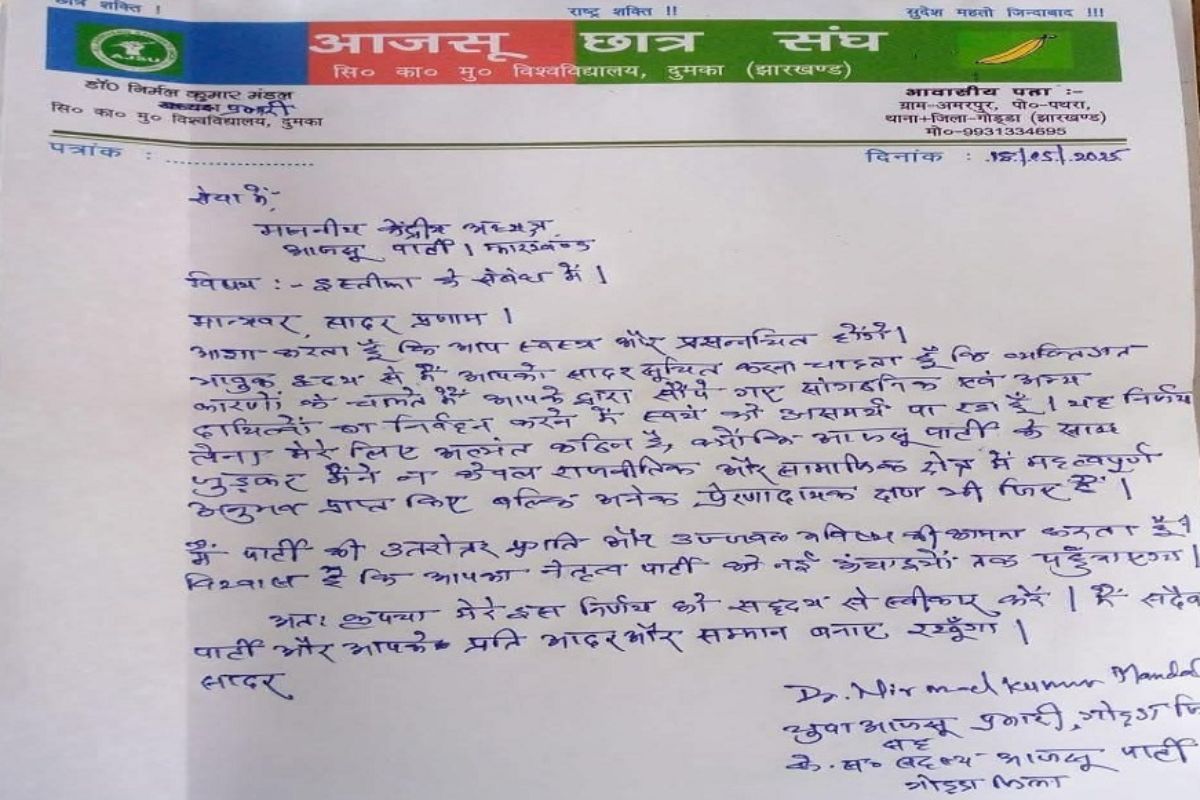 छात्र शक्ति !
राष्ट्र शक्ति !!
सुदेश महतो जिन्दाबाद !!!
AJSU
आजसू छात्र संघ
सि० का० मु० विश्वविद्यालय, दुमका (झारखण्ड)
डॉ० निर्मल कुमार मंडल
अध्यक्ष प्रभारी
सि० का० मु० विश्वविद्यालय, दुमका
आवासीय पता :-
ग्राम-अमरपुर, पो०-पथरा,
थाना+जिला-गोड्डा (झारखण्ड)
मो०-9931334695
पत्रांक : ....................
दिनांक : 18/05/2025
सेवा में,
माननीय केंद्रीय अध्यक्ष,
आजसू पार्टी । झारखंड
विषय :- इस्तीफा के संबंध में ।
मान्यवर, सादर प्रणाम ।
आशा करता हूँ कि आप स्वस्थ और प्रसन्नचित होंगे।
भावुक हृदय से मैं आपको सादर सूचित करना चाहता हूँ कि व्यक्तिगत
कारणों के चलते मैं आपके द्वारा सौंपे गए सांगठनिक एवं अन्य
दायित्वों का निर्वहन करने में स्वयं को असमर्थ पा रहा हूँ। यह निर्णय
लेना मेरे लिए अत्यंत कठिन है, क्योंकि आजसू पार्टी के साथ
जुड़कर मैंने न केवल राजनीतिक और सामाजिक क्षेत्र में महत्वपूर्ण
अनुभव प्राप्त किए बल्कि अनेक प्रेरणादायक क्षण भी जिए हैं।
मैं पार्टी की उतरोतर प्रगति और उज्जवल भविष्य की कामना करता हूँ।
विश्वास है कि आपका नेतृत्व पार्टी को नई ऊंचाइयों तक पहुँचाएगा।
अतः कृपया मेरे इस निर्णय को सहृदय से स्वीकार करें । मैं सदैव
पार्टी और आपके प्रति आदर और सम्मान बनाए रखूँगा ।
सादर
Dr. Nirmal Kumar Mandal
युवा आजसू प्रभारी, गोड्डा
सह
के. स० सदस्य आजसू पार्टी
गोड्डा जिला